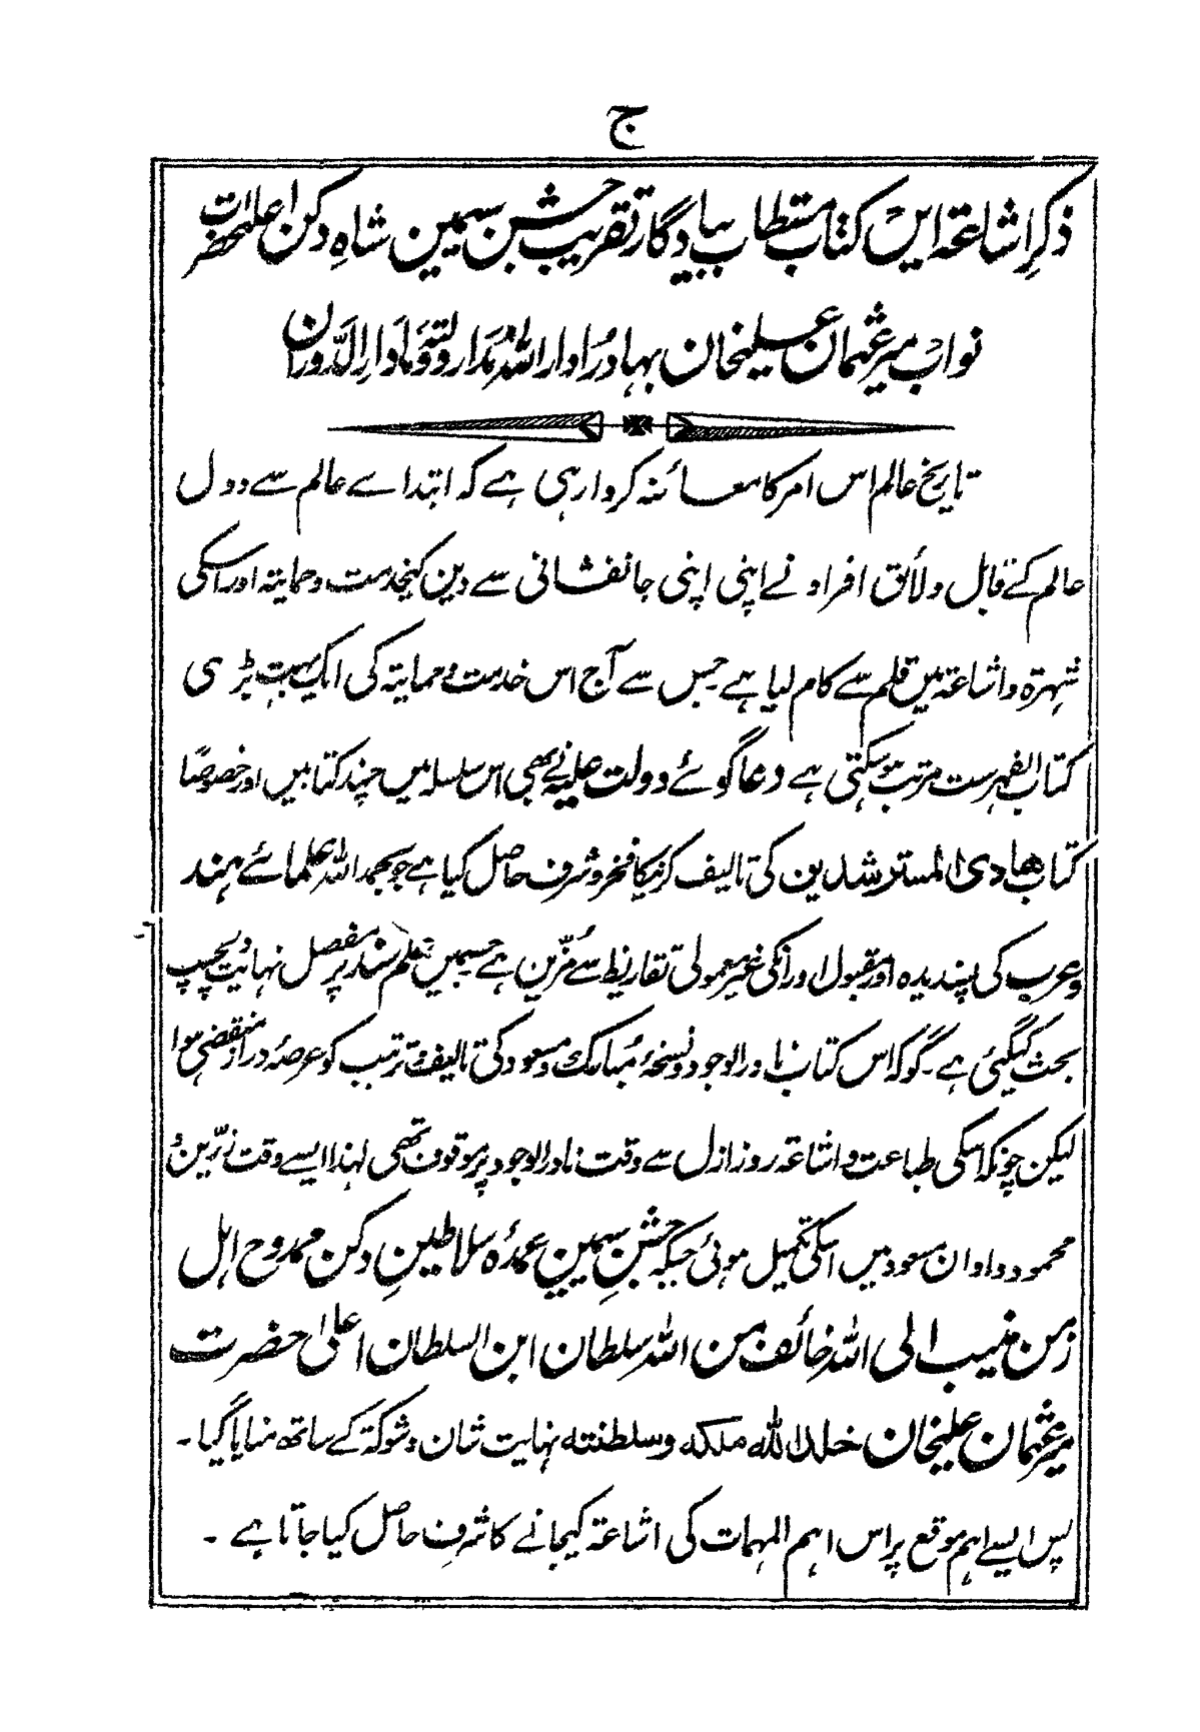 ج
ذکرِ اشاعۃ ایں کتاب مستطاب بیادگار تقریب جشن سیمین شاہِ دکن اعلیٰحضرت
نواب میر عثمان علیخان بہادر ادار اللہ مدار دولتہ ومادار الدوران
تاریخ عالم اس امر کا معائنہ کروا رہی ہے کہ ابتداے عالم سے دول
عالم کے قابل ولائق افراد نے اپنی اپنی جانفشانی سے دین کیخدمت وحمایۃ اور اسکی
شہرۃ واشاعۃ میں قلم سے کام لیا ہے جس سے آج اس خدمت وحمایۃ کی ایک بہت بڑی سی
کتاب الفہرست مرتب ہوسکتی ہے دعاگوئے دولت علیہ نے بھی اس سلسلہ میں چند کتابیں اور خصوصًا
کتاب ھادی المسترشدین کی تالیف کرنیکا فخر وشرف حاصل کیا ہے جو بحمد اللہ علمائے ہند
وعرب کی پسندیدہ اور مقبول اور انکی غیر معمولی تقاریظ سے مُزّین ہے جسمیں علم سند پر مفصل نہایت دلچسپ
بحث کیگئی ہے ۔ گو کہ اس کتاب نادر الوجود ونسخۂ مُبارک ومسعود کی تالیف وترتیب کو عرصۂ دراز منقضی ہوا
لیکن چونکہ اسکی طباعت واشاعۃ روز ازل سے وقت نادر الوجود پر موقوف تھی لہذا ایسے وقت زرّین
محمود واوان مسعود میں اسکی تکمیل ہوئی جبکہ جشنِ سیمین عمدۂ سلاطینِ دکن ممدوح اہل
زمن منیب الی اللہ خائف من اللہ سلطان ابن السلطان اعلیٰ حضرت
میر عثمان علیخان خلد اللہ ملکہ وسلطنتہ نہایت شان وشوکۃ کے ساتھ منایا گیا ۔
پس ایسے اہم موقع پر اس اہم المہمات کی اشاعۃ کیجانے کا شرف حاصل کیا جاتا ہے ۔